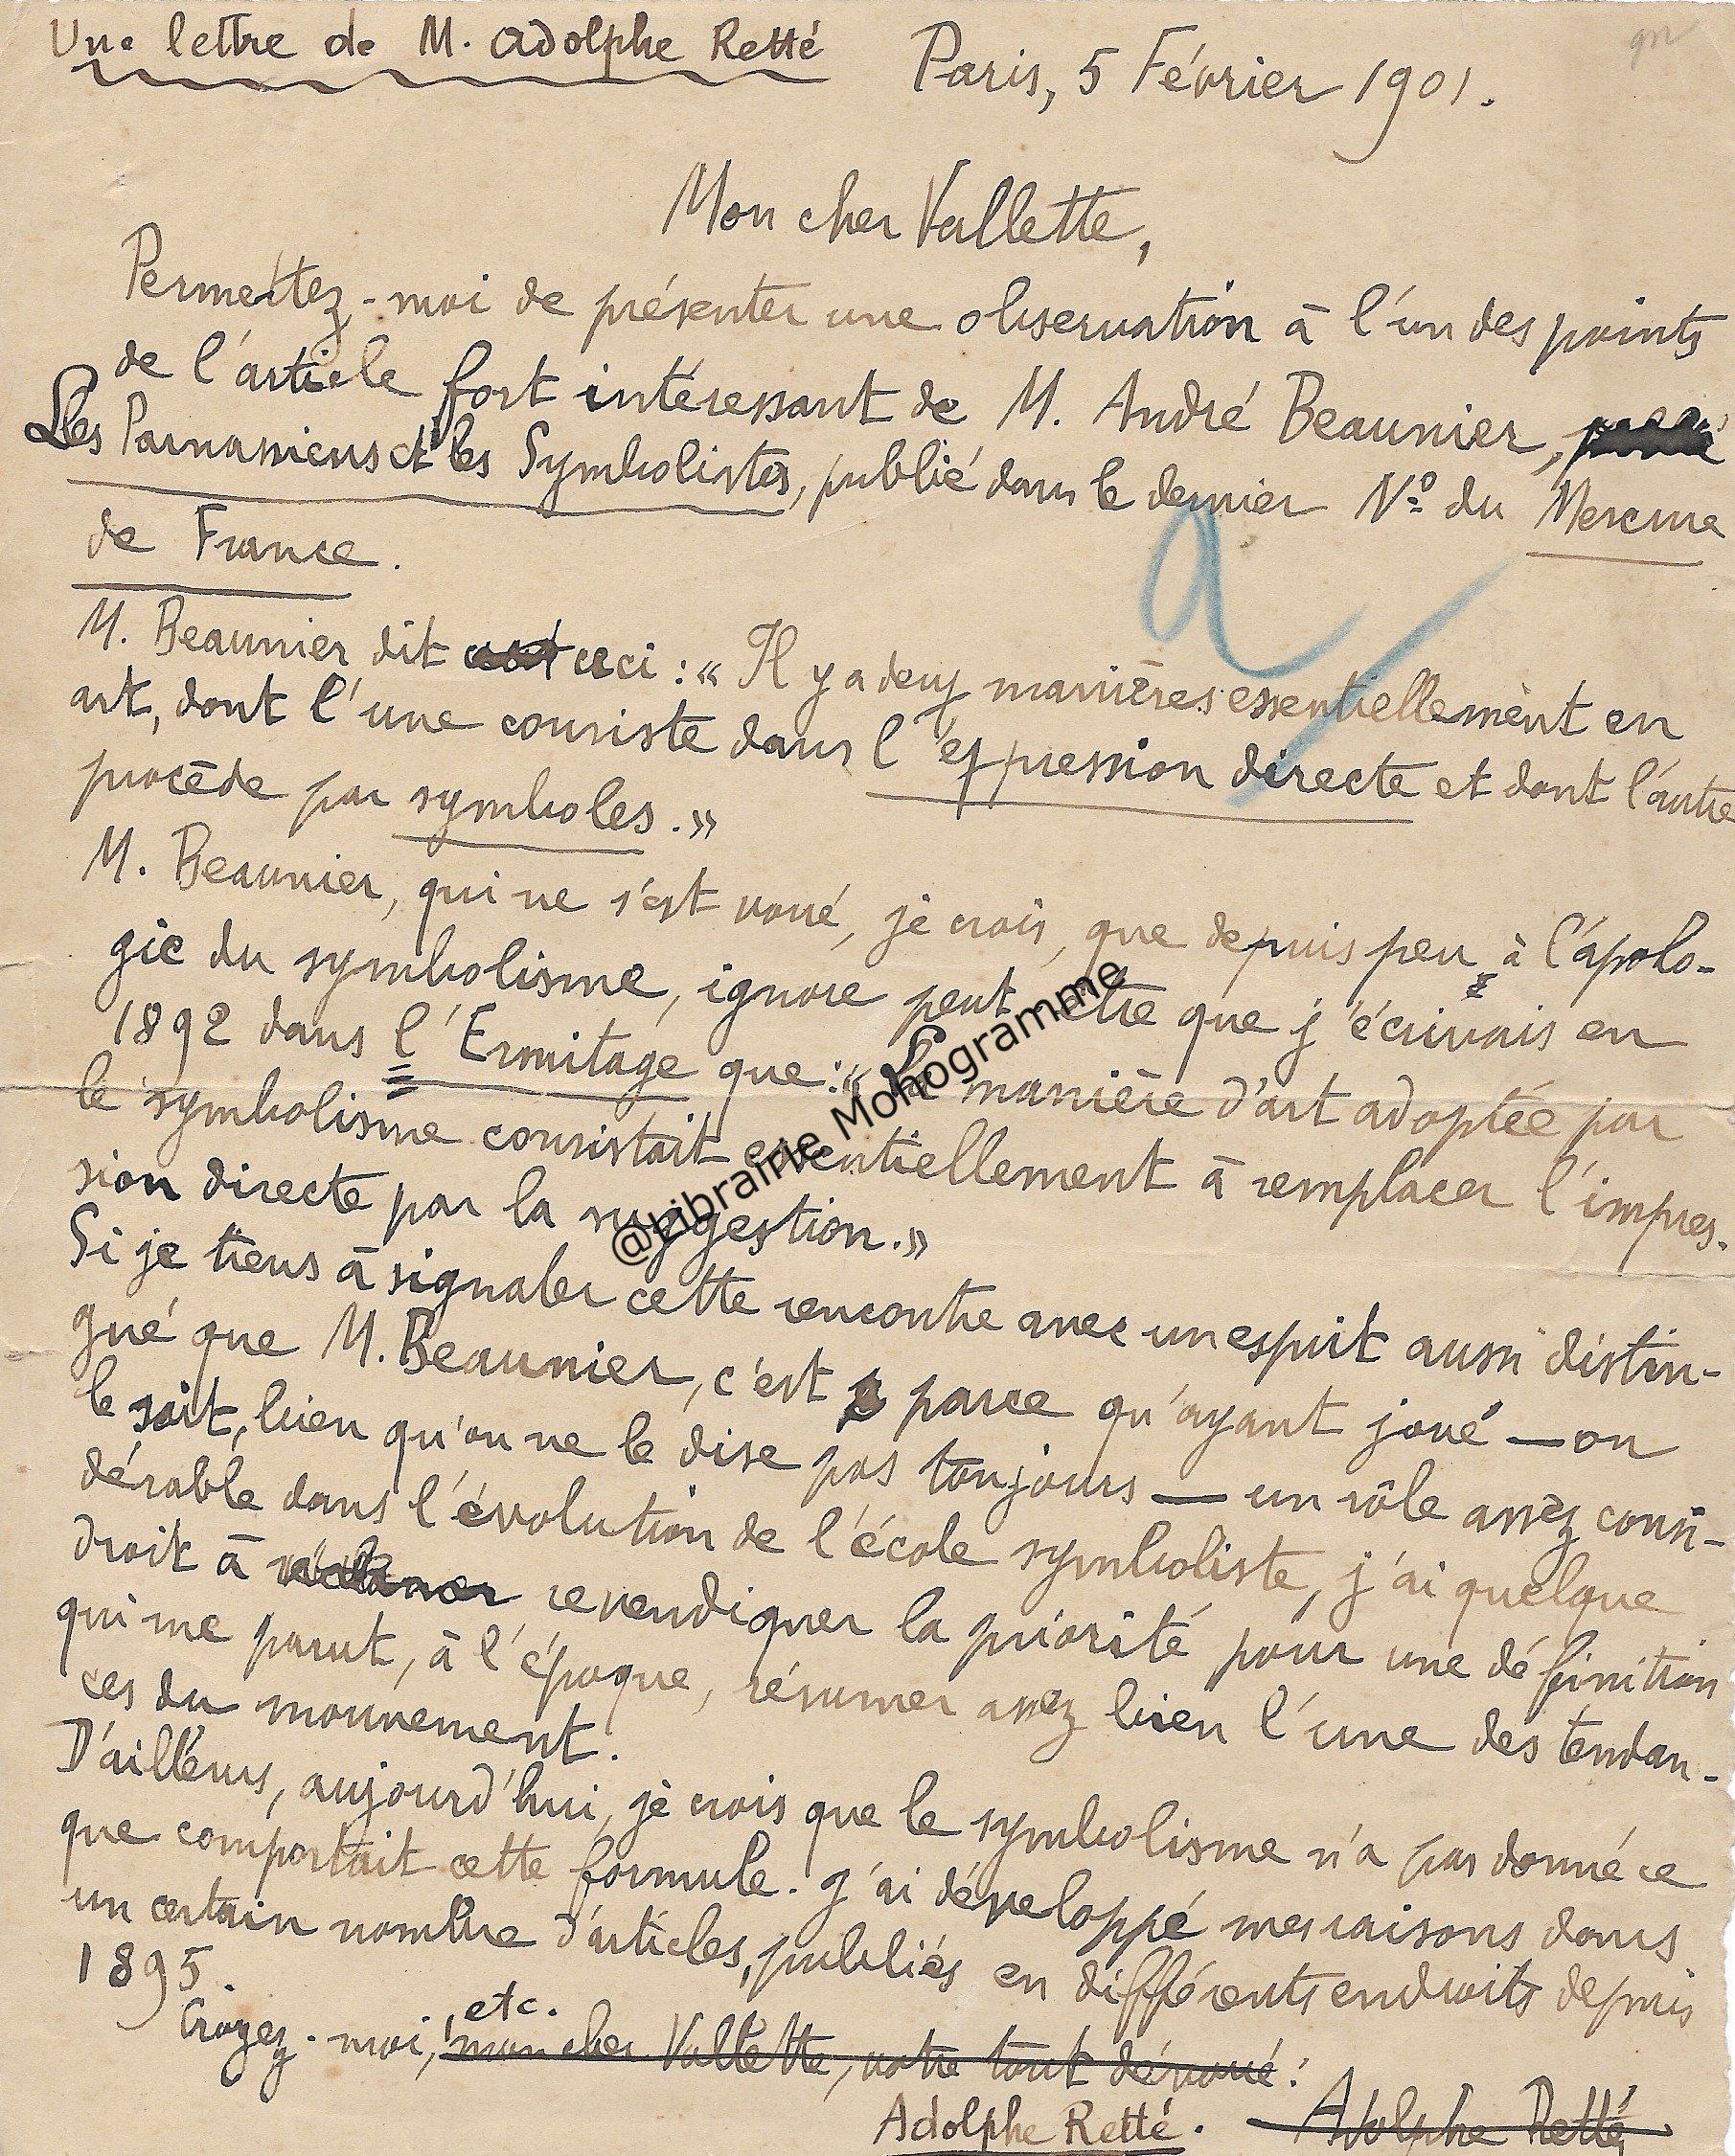 Une lettre de M. Adolphe Retté
Paris, 5 Février 1901.
Mon cher Vallette,
Permettez-moi de présenter une observation à l'un des points
de l'article fort intéressant de M. André Beaunier,
Les Parnassiens et les Symbolistes, publié dans le dernier No du Mercure
de France.
M. Beaunier dit ceci : « Il y a deux manières essentiellement en
art, dont l'une consiste dans l'expression directe et dont l'autre
procède par symboles. »
M. Beaunier, qui ne s'est voué, je crois, que depuis peu à l'apolo-
gie du symbolisme, ignore peut-être que j'écrivais en
1892 dans l'Ermitage que : « La manière d'art adoptée par
le symbolisme consistait essentiellement à remplacer l'impres-
sion directe par la suggestion. »
Si je tiens à signaler cette rencontre avec un esprit aussi distin-
gué que M. Beaunier, c'est parce qu'ayant joué — on
le sait, bien qu'on ne le dise pas toujours — un rôle assez consi-
dérable dans l'évolution de l'école symboliste, j'ai quelque
droit à réclamer revendiquer la priorité pour une définition
qui me parut, à l'époque, résumer assez bien l'une des tendan-
ces du mouvement.
D'ailleurs, aujourd'hui, je crois que le symbolisme n'a pas donné ce
que comportait cette formule. J'ai développé mes raisons dans
un certain nombre d'articles, publiés en différents endroits depuis
1895.
Croyez-moi, etc. mon cher Vallette, votre tout dévoué :
Adolphe Retté. Adolphe Retté
@Librairie Monogramme